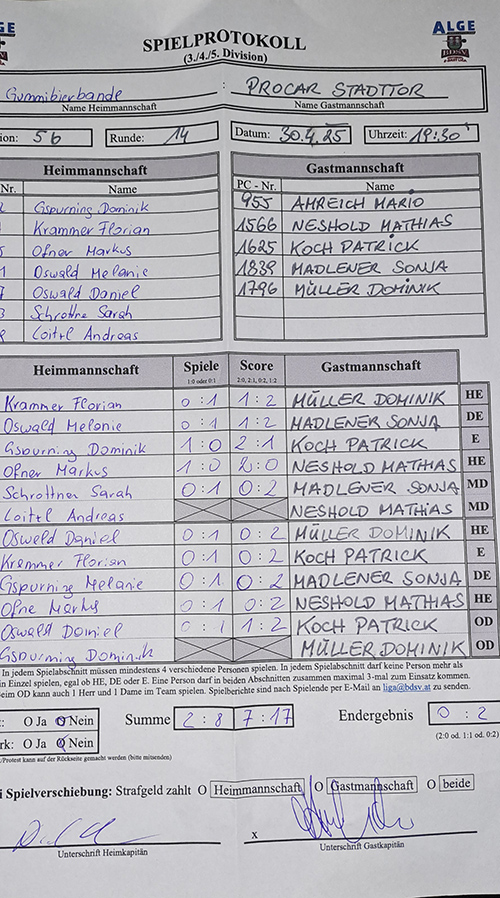 GE ALGE
BDSV
SPIELPROTOKOLL
(3./4./5. Division)
Gummibierbande : PROCAR STADTTOR
Name Heimmannschaft Name Gastmannschaft
ion: 5b Runde: 14 Datum: 30.4.25 Uhrzeit: 19:30
Heimmannschaft Gastmannschaft
Nr. Name PC - Nr. Name
Gspurning Dominik 955 AMREICH MARIO
Krammer Florian 1566 NESHOLD MATHIAS
Ofner Markus 1625 KOCH PATRICK
Oswald Melanie 1839 MADLENER SONJA
Oswald Daniel 1796 MÜLLER DOMINIK
Schrottne Sarah
Loitzl Andreas
Heimmannschaft Spiele Score Gastmannschaft
1:0 oder 0:1 2:0, 2:1, 0:2, 1:2
Krammer Florian 0:1 1:2 MÜLLER DOMINIK HE
Oswald Melonie 0:1 1:2 MADLENER SONJA DE
Gspurning Dominik 1:0 2:1 KOCH PATRICK E
Ofner Markus 1:0 2:0 NESHOLD MATHIAS HE
Schrottner Sarah 0:1 0:2 MADLENER SONJA MD
Loitzl Andreas NESHOLD MATHIAS MD
Osweld Daniel 0:1 0:2 MÜLLER DOMINIK HE
Krammer Florian 0:1 0:2 KOCH PATRICK E
Gspurning Melanie 0:1 0:2 MADLENER SONJA DE
Ofne Markus 0:1 0:2 NESHOLD MATHIAS HE
Oswald Daniel 0:1 1:2 KOCH PATRICK OD
Gspurning Dominik MÜLLER DOMINIK OD
In jedem Spielabschnitt müssen mindestens 4 verschiedene Personen spielen. In jedem Spielabschnitt darf keine Person mehr als
in Einzel spielen, egal ob HE, DE oder E. Eine Person darf in beiden Abschnitten zusammen maximal 3-mal zum Einsatz kommen.
Beim OD kann auch 1 Herr und 1 Dame im Team spielen. Spielberichte sind nach Spielende per E-Mail an liga@bdsv.at zu senden.
: O Ja O Nein Summe 2:8 7:17 Endergebnis 0:2
rk: O Ja O Nein (2:0 od. 1:1 od. 0:2)
/Protest kann auf der Rückseite gemacht werden (bitte mitsenden)
i Spielverschiebung: Strafgeld zahlt O Heimmannschaft O Gastmannschaft O beide
x
Unterschrift Heimkapitän Unterschrift Gastkapitän